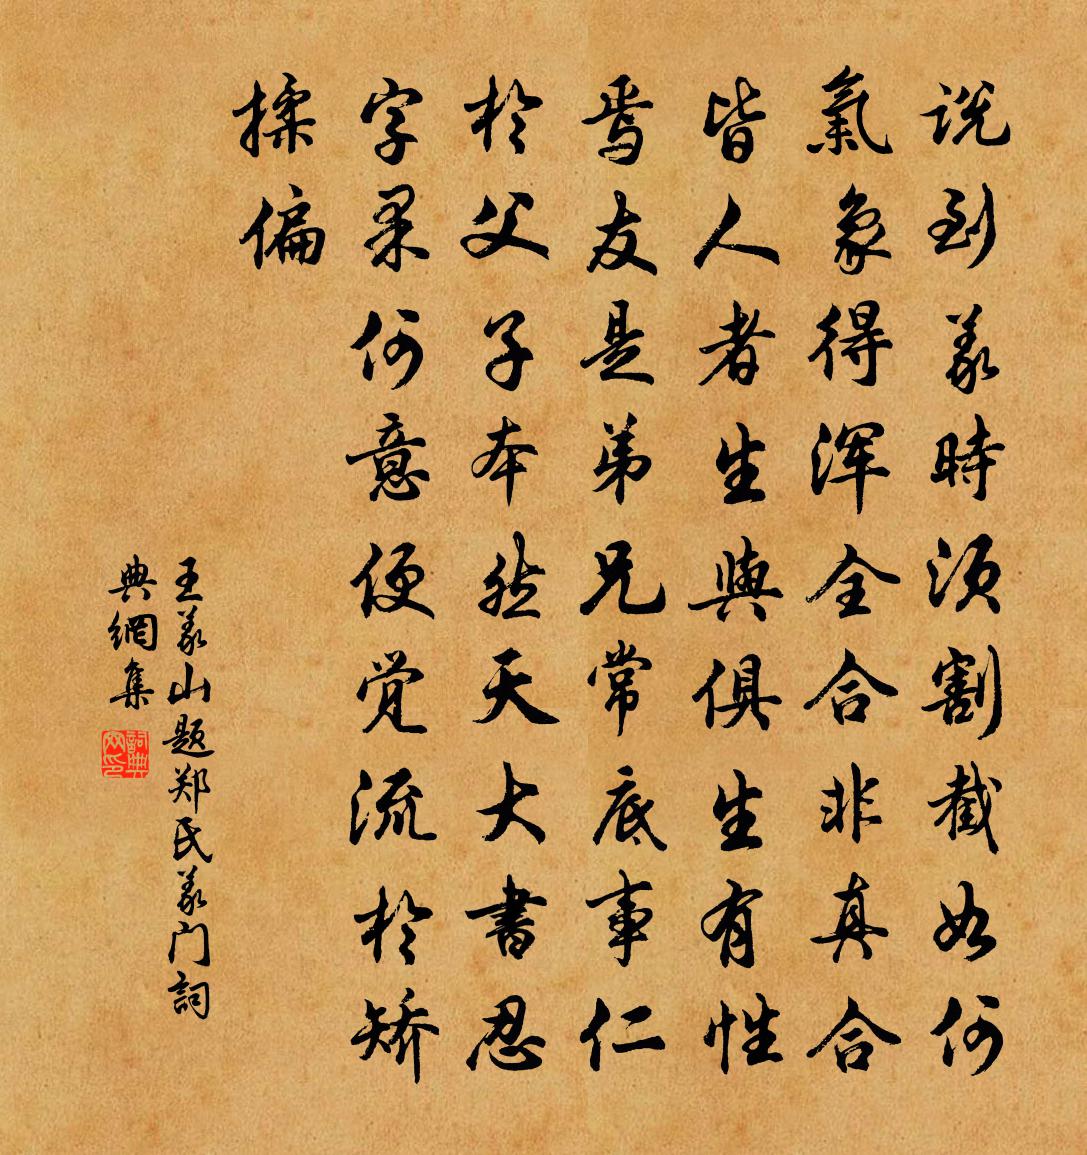 说到義時须割截如何
氣象得浑全合非真合
皆人者生與俱生有性
焉友是弟兄常底事仁
於父子本然天大書忍
字果何意便觉流於矫
揉偏
王義山题郑氏義门詞
典網集
詞典网印